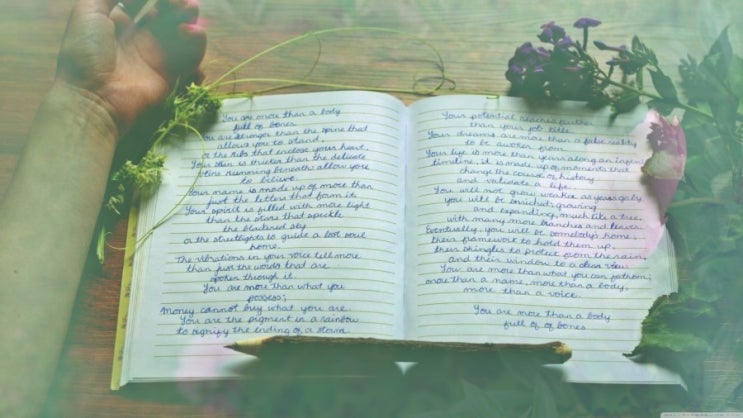 You are more than a body
full of bones.
You are stronger than the spine that
allows you to stand,
or the ribs that enclose your heart.
Your skin is thicker than the delicate
running beneath allow you
to believe.
Your name is made up of more than
just the letters that form it.
Your spirit is filled with more light
than the stars that speckle
the blackened sky
or the streetlights to guide a lost soul
home.
The vibrations in your voice tell more
than just the words that are
spoken through it.
You are more than what you
possess;
money cannot buy what you are
You are the pigment in a rainbow
to signify the ending of a storm.
Your potential reaches further
than your job title.
Your dreams are more than a false reality
to be awoken from.
Your life is more than years along an
timeline, it is made up of moments that
change the course of history
and validate a life.
You will not grow weaker as years go by
you will be enriched, growing
and expanding, much like a tree,
with many more branches and leaves.
Eventually, you will be somebody's home;
their framework to hold them up,
their shingles to protect from the rain,
and their window to a clear view.
You are more than what you can fathom;
more than a name, more than a body,
more than a voice.
You are more than a body
full of of bones